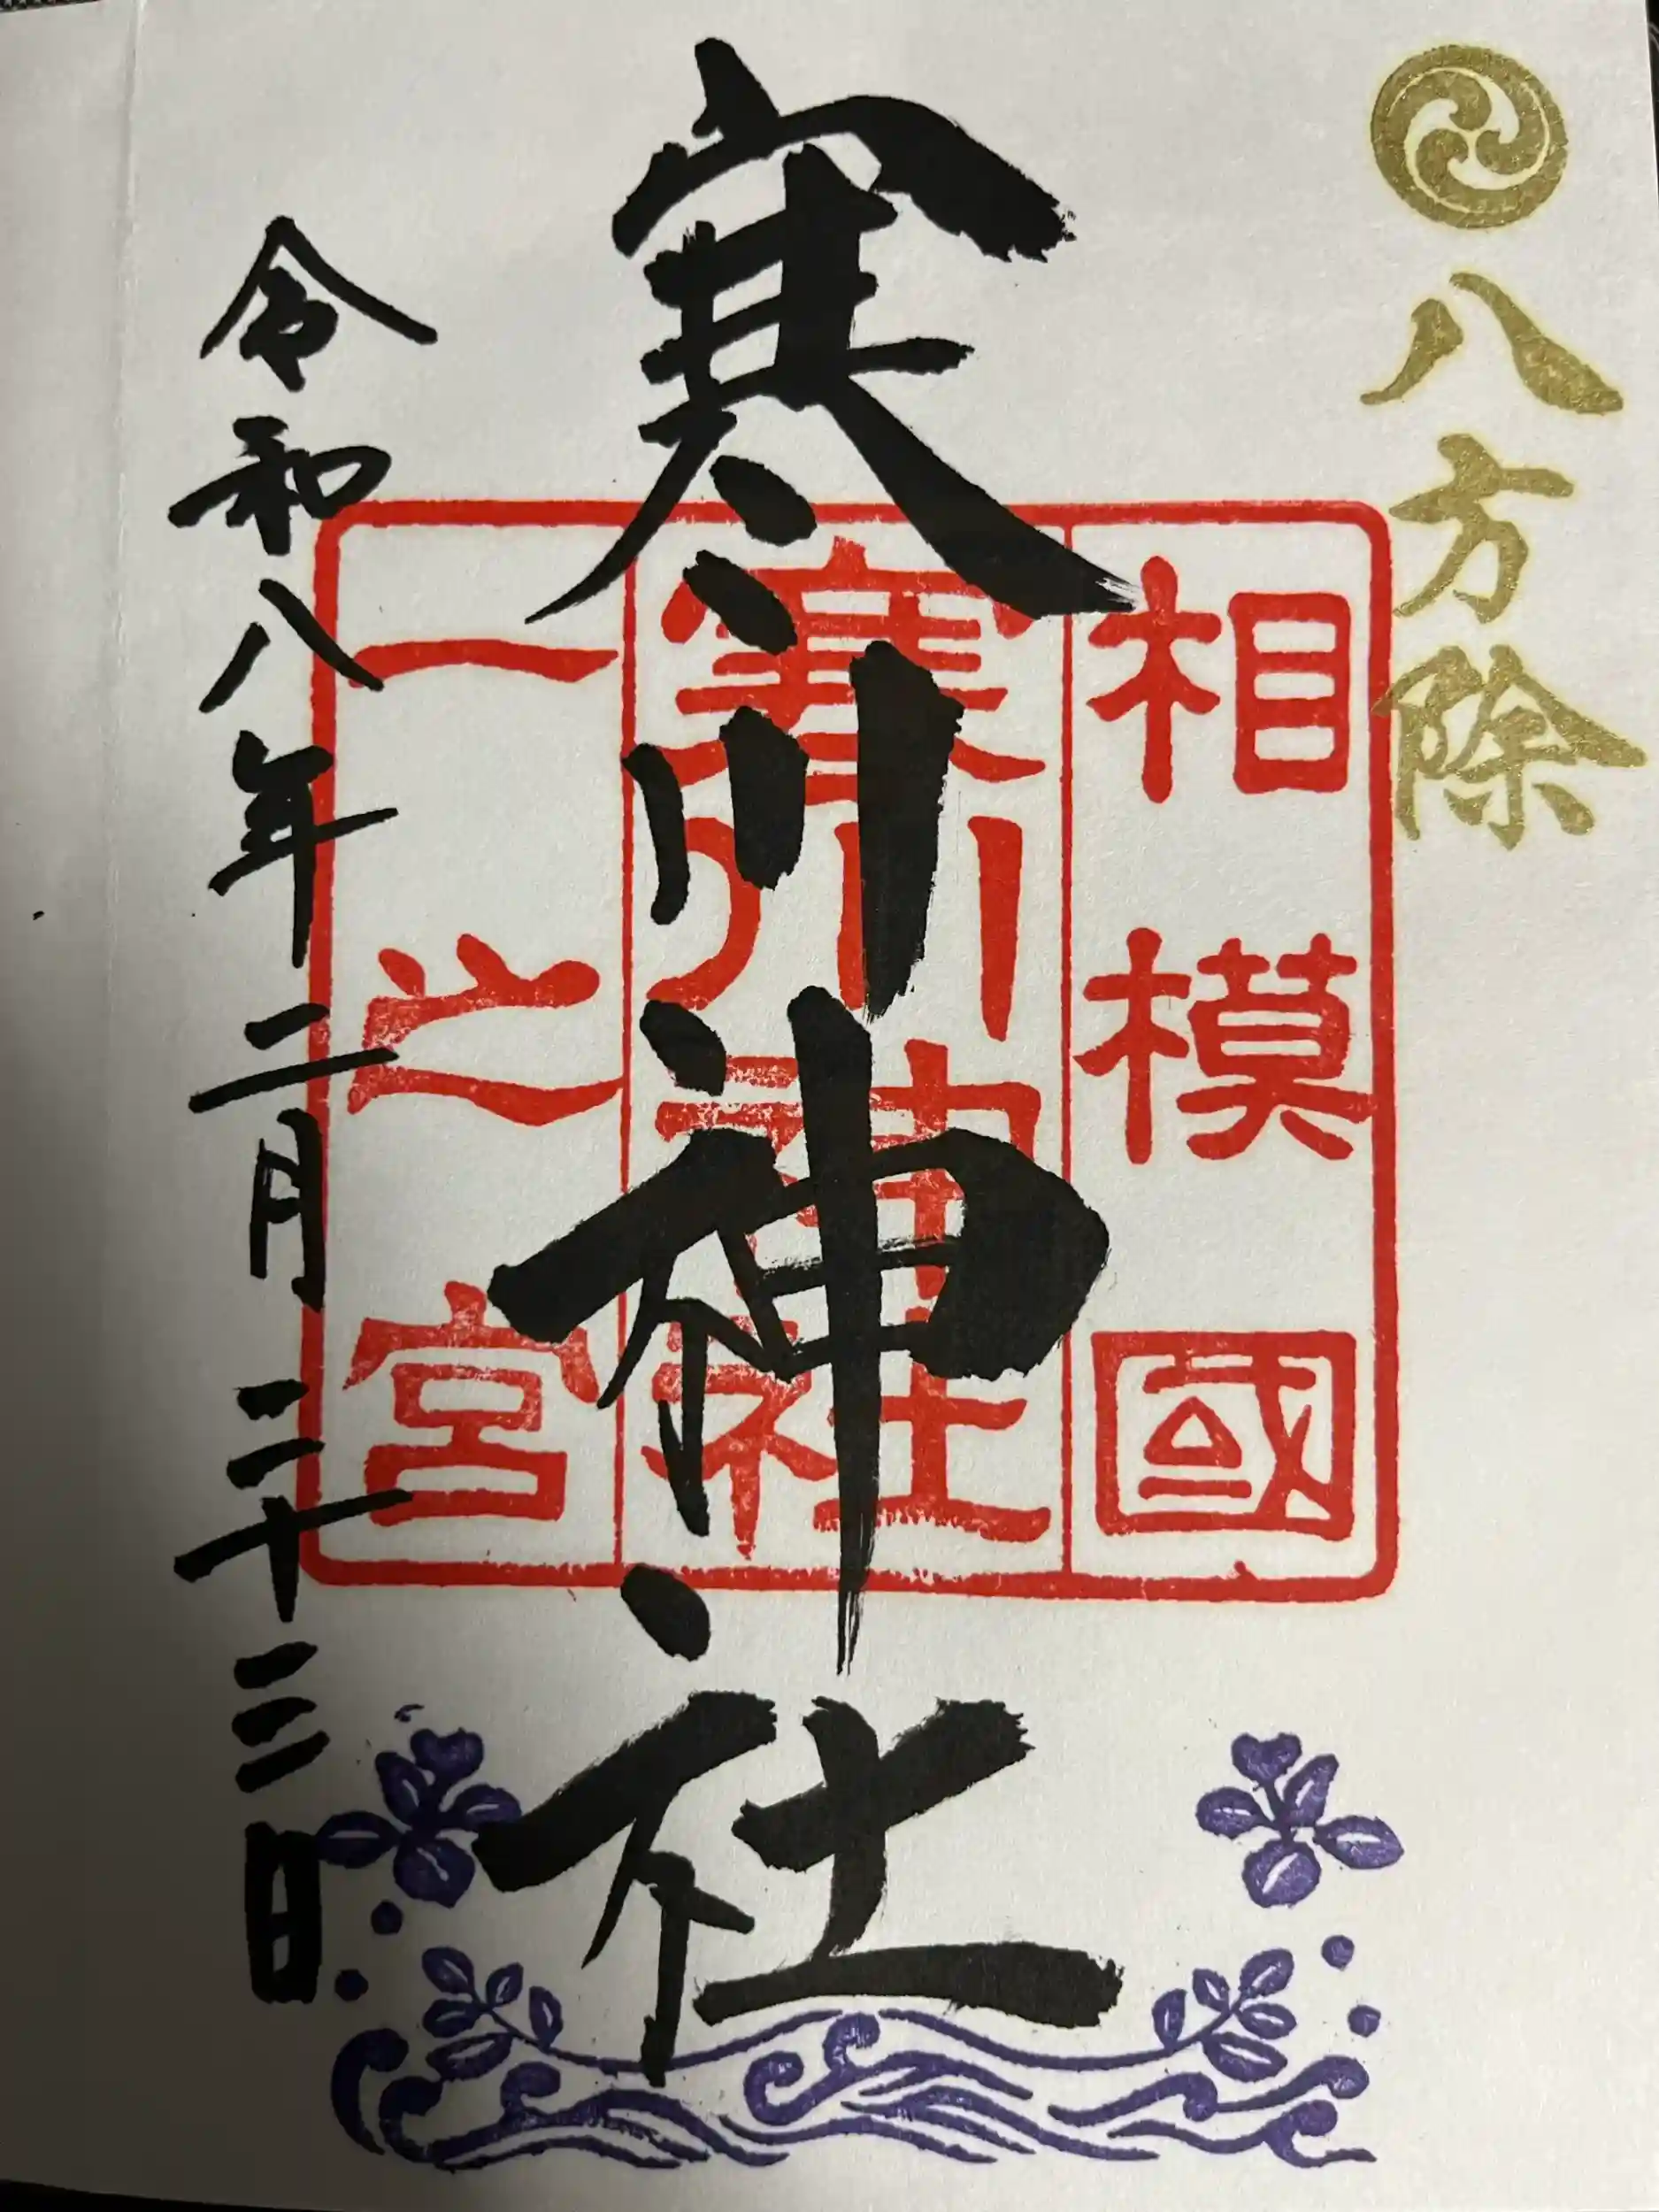 八方除
相模國
寒川神社
一之宮
寒川神社
令和八年二月二十三日